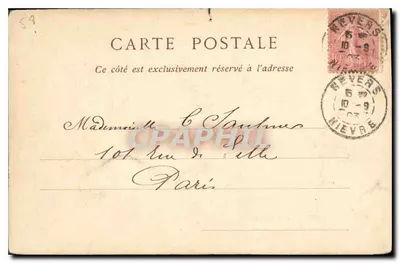 59
CARTE POSTALE
Ce côté est exclusivement réservé à l'adresse
NEVERS
10 - 9
03
NIEVRE
NEVERS
10 - 9
03
NIEVRE
Mademoiselle C.
CPAPHIL
101 rue de
Paris